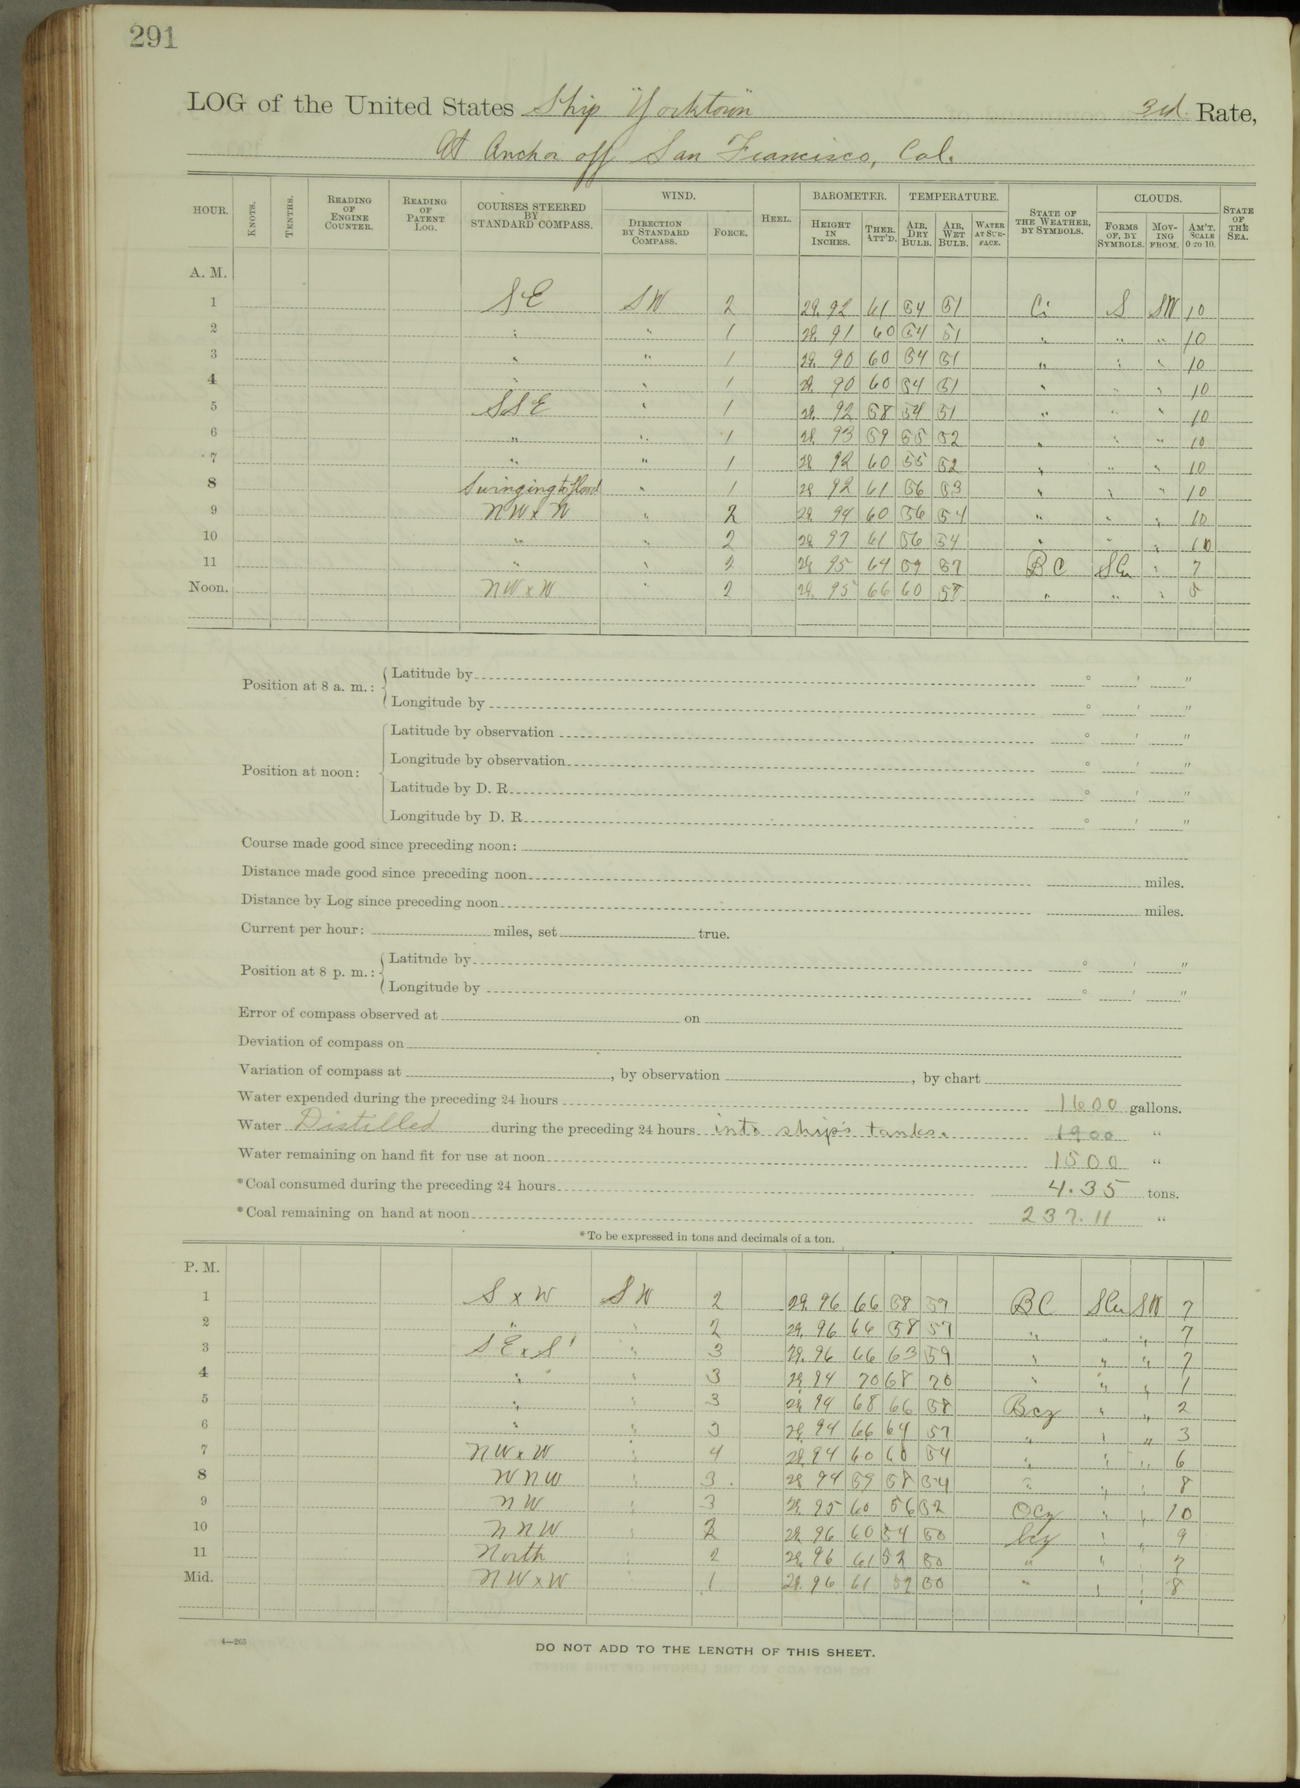 291
LOG of the United States Ship "Yorktown" 3rd Rate,
At Anchor off San Francisco, Cal.
HOUR. KNOTS. TENTHS. READING OF ENGINE COUNTER. READING OF PATENT LOG. COURSES STEERED BY STANDARD COMPASS. WIND. DIRECTION BY STANDARD COMPASS. FORCE. HEEL. BAROMETER. HEIGHT IN INCHES. THER. ATT'D. TEMPERATURE. AIR, DRY BULB. AIR, WET BULB. WATER AT SURFACE. STATE OF THE WEATHER, BY SYMBOLS. CLOUDS. FORMS OF, BY SYMBOLS. MOVING FROM. AM'T. SCALE 0 TO 10. STATE OF THE SEA.
A. M.
1 SE SW 2 29.92 61 54 51 S SW 10
2 " " 1 29.91 60 54 51 " " " 10
3 " " 1 29.90 60 54 51 " " " 10
4 " " 1 29.90 60 54 51 " " " 10
5 SSE " 1 29.92 58 54 51 " " " 10
6 " " 1 29.93 59 55 52 " " " 10
7 " " 1 29.92 60 55 52 " " " 10
8 Swinging to flood " 1 29.92 61 56 53 " " " 10
9 NW x N " 2 29.94 60 56 54 " " " 10
10 " " 2 29.97 61 56 54 " " " 10
11 " " 2 29.95 64 59 57 BC SCu " 7
Noon. NW x W " 2 29.95 66 60 " " " 5
Position at 8 a. m.: Latitude by ° ' "
Longitude by ° ' "
Position at noon: Latitude by observation ° ' "
Longitude by observation ° ' "
Latitude by D. R. ° ' "
Longitude by D. R. ° ' "
Course made good since preceding noon:
Distance made good since preceding noon miles.
Distance by Log since preceding noon miles.
Current per hour: miles, set true.
Position at 8 p. m.: Latitude by ° ' "
Longitude by ° ' "
Error of compass observed at on
Deviation of compass on
Variation of compass at , by observation , by chart
Water expended during the preceding 24 hours 1600 gallons.
Water Distilled during the preceding 24 hours into ship's tanks. 1900 "
Water remaining on hand fit for use at noon 1500 "
*Coal consumed during the preceding 24 hours 4.35 tons.
*Coal remaining on hand at noon 237.11 "
*To be expressed in tons and decimals of a ton.
P. M.
1 S x W SW 2 29.96 66 58 BC SCu SW 7
2 " " 2 29.96 66 58 57 " " " 7
3 SE x S " 3 29.96 66 63 59 " " " 7
4 " " 3 29.94 70 68 70 " " " 1
5 " " 3 29.94 68 66 58 Bcz " " 2
6 " " 3 29.94 66 64 57 " " " 3
7 NW x W " 4 29.94 60 60 54 " " " 6
8 WNW " 3 29.94 59 58 54 " " " 8
9 NW " 3 29.95 60 56 52 Ocz " " 10
10 NNW " 2 29.96 60 54 50 bcz " " 9
11 North " 2 29.96 61 52 50 " " " 7
Mid. NW x W " 1 29.96 61 52 50 " " " 8
4—265
DO NOT ADD TO THE LENGTH OF THIS SHEET.